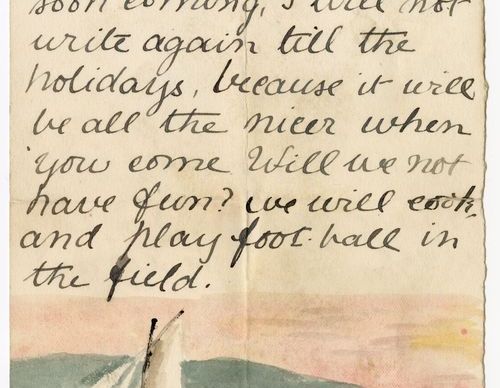 soon coming, I will not
write again till the
holidays, because it will
be all the nicer when
you come Will we not
have fun? we will cook,
and play foot-ball in
the field.